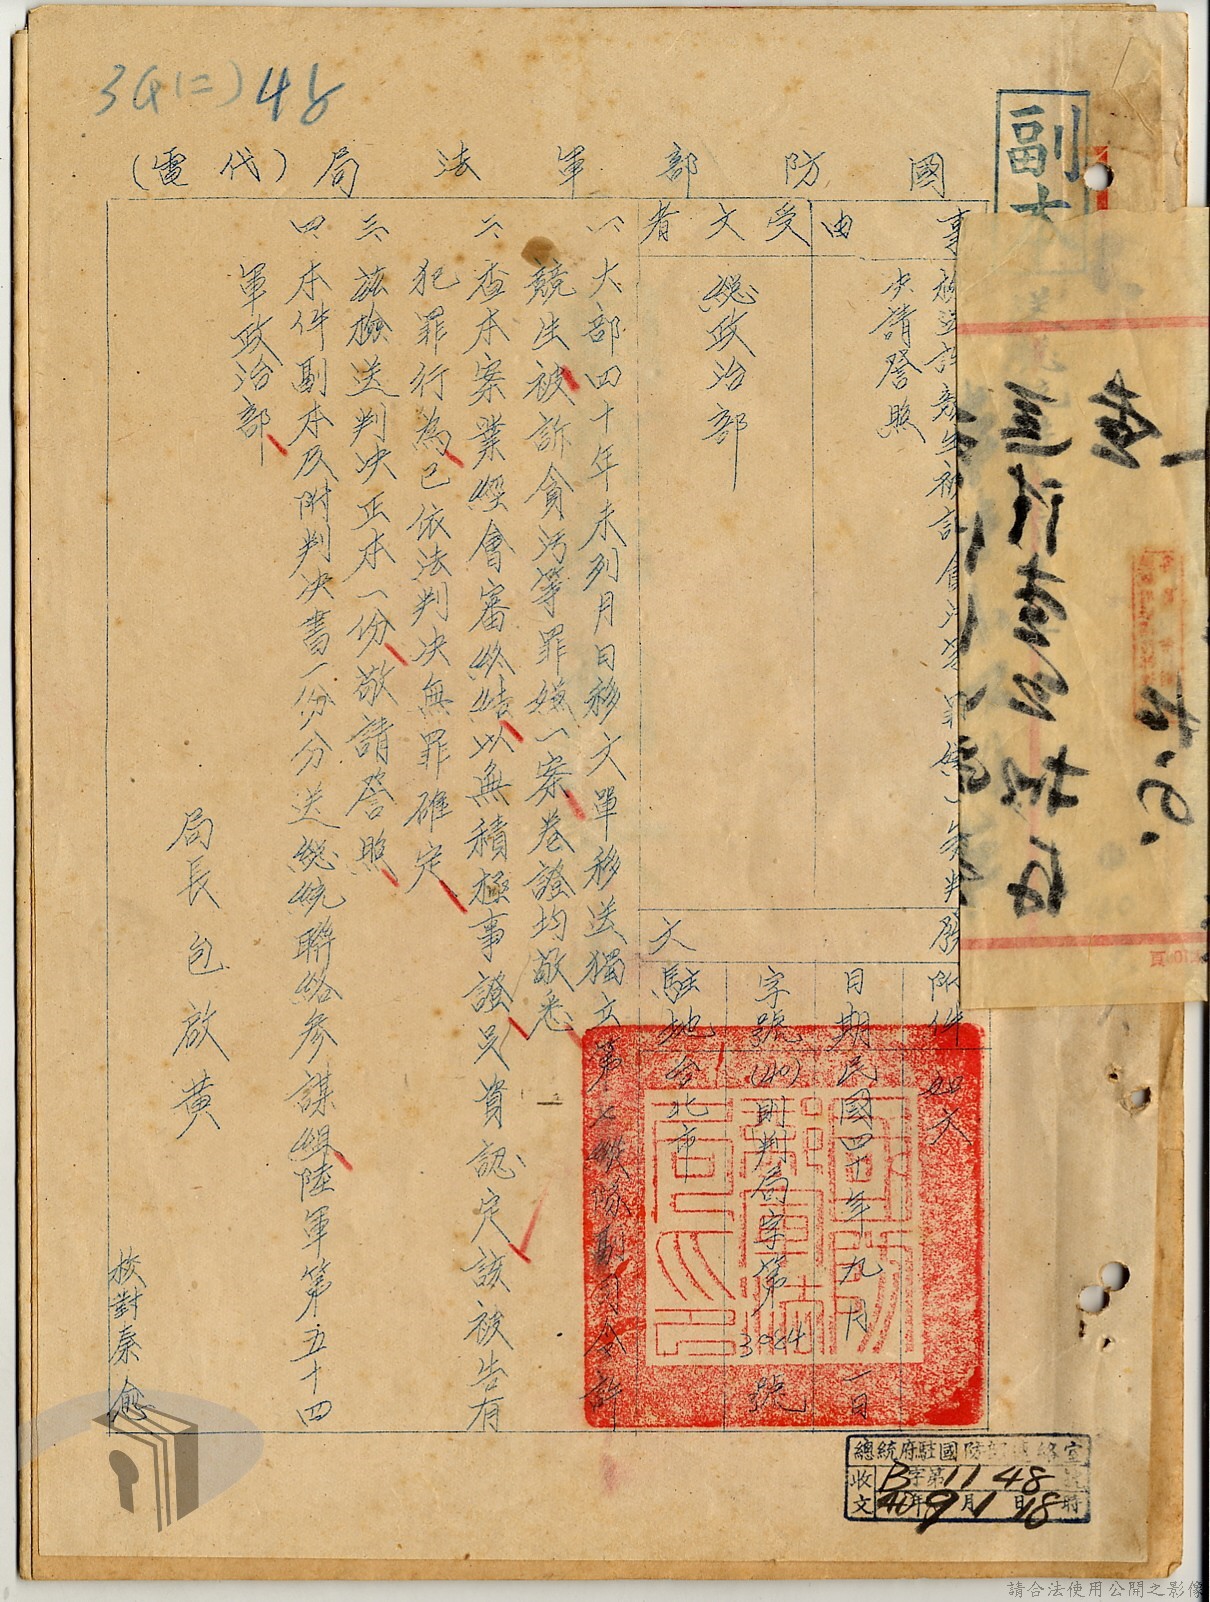 34(二)48
副本
國防部軍法局(代電)
事由
移送許競生被訴貪污等罪嫌一案判
決請詧照
受文者
總政治部
發文
附件 如文
日期 民國四十年九月一日
字號 (40)則判局字第3924號
駐地 台北市
一、大部四十年未列月日移文單移送獨立第七縱隊副司令許
競生被訴貪污等罪嫌一案卷證均敬悉
二、查本案業經會審終結以無積極事證足資認定該被告有
犯罪行為已依法判決無罪確定
三、茲檢送判決正本一份敬請詧照
四、本件副本及附判決書一份分送總統聯絡參謀組陸軍第五十四
軍政治部
局長包啟黃
校對秦愈
總統府駐國防部連絡室
收文 B字第1148號
40年9月1日18時
請合法使用公開之影像